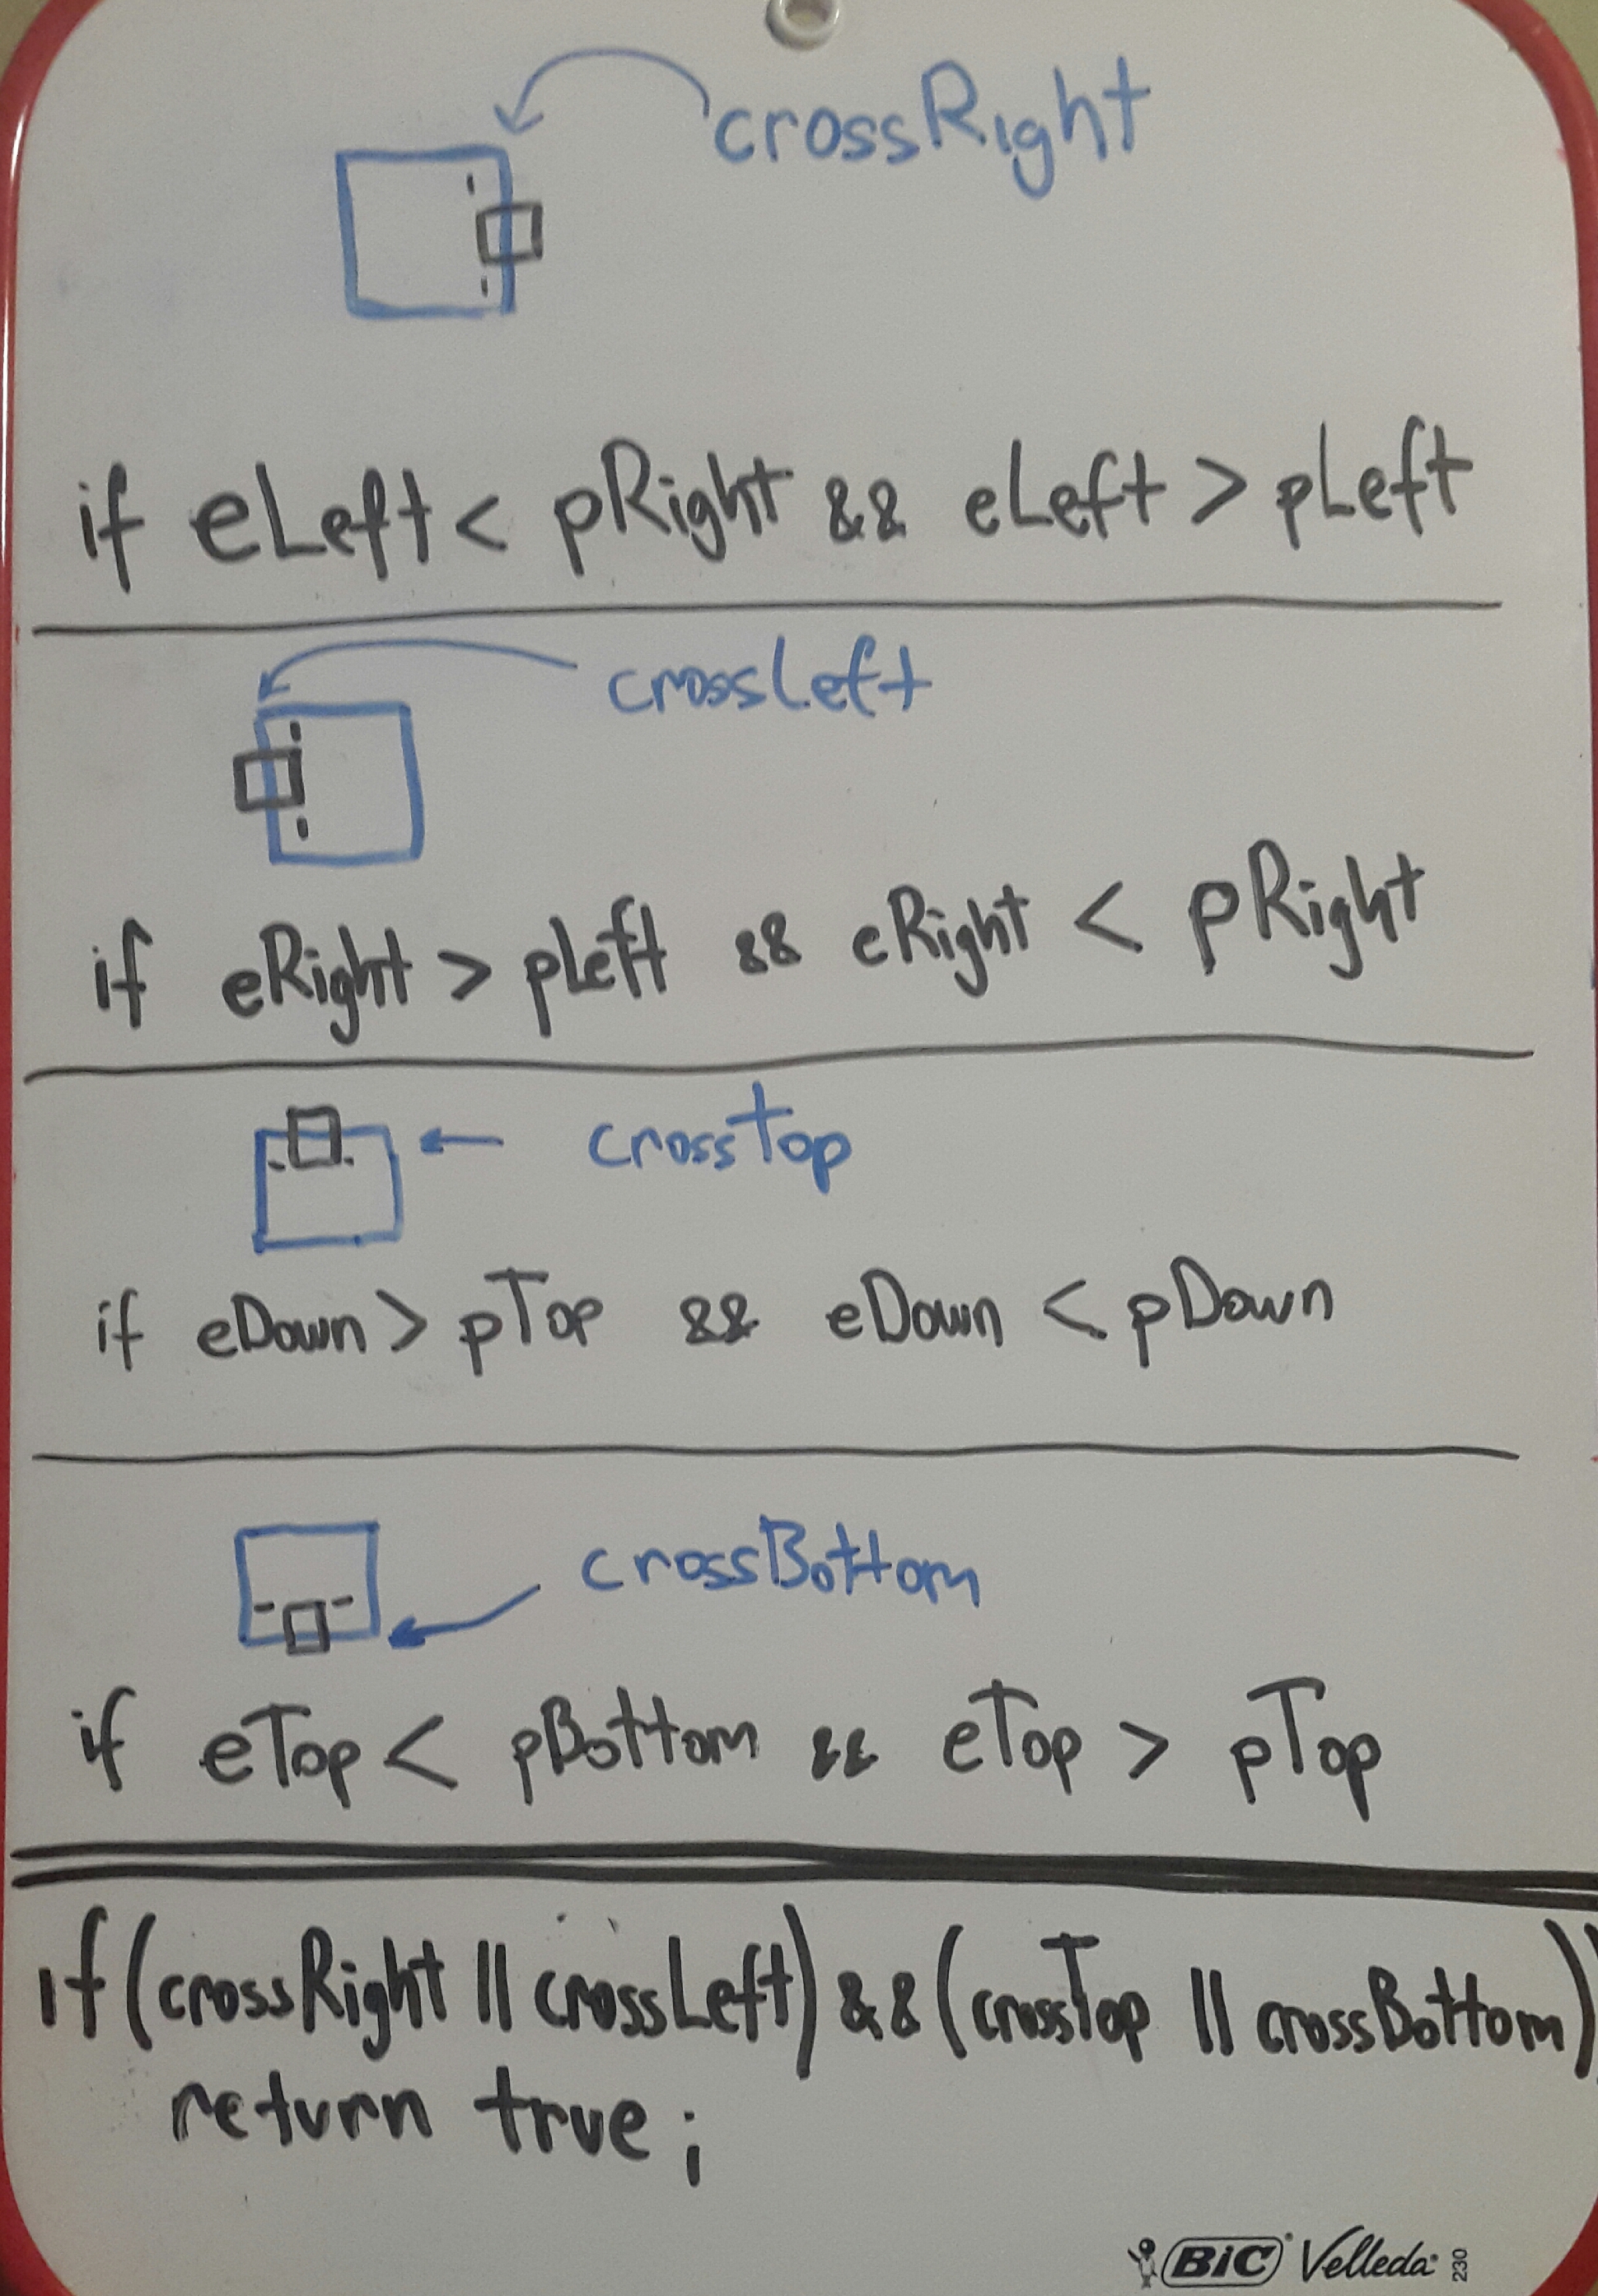 crossRight
if eLeft < pRight && eLeft > pLeft
crossLeft
if eRight > pLeft && eRight < pRight
crossTop
if eDown > pTop && eDown < pDown
crossBottom
if eTop < pBottom && eTop > pTop
if (crossRight || crossLeft) && (crossTop || crossBottom))
return true;
BIC® Velleda® 230